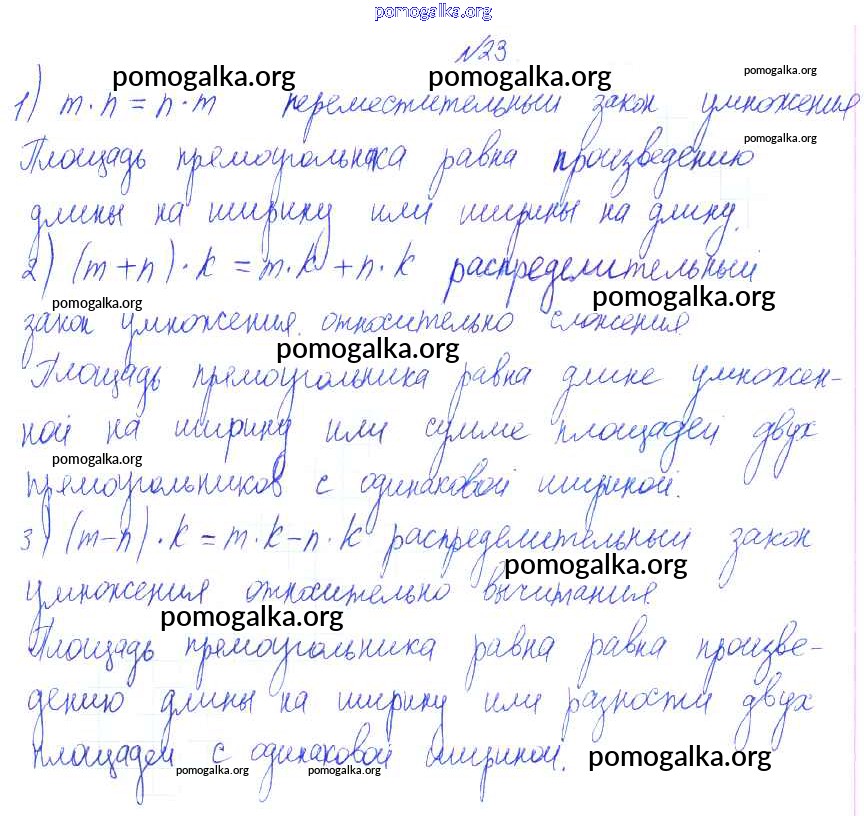 pomogalka.org
№23.
pomogalka.org pomogalka.org pomogalka.org
1) m·n = n·m переместительный закон умножения
pomogalka.org
Площадь прямоугольника равна произведению
длины на ширину или ширины на длину.
2) (m+n)·k = m·k+n·k распределительный
pomogalka.org pomogalka.org
закон умножения относительно сложения.
pomogalka.org
Площадь прямоугольника равна длине умножен-
ной на ширину или сумме площадей двух
pomogalka.org
прямоугольников с одинаковой шириной.
3) (m-n)·k = m·k-n·k распределительный закон
pomogalka.org
умножения относительно вычитания.
pomogalka.org
Площадь прямоугольника равна равна произве-
дению длины на ширину или разности двух
площадей с одинаковой шириной.
pomogalka.org pomogalka.org pomogalka.org